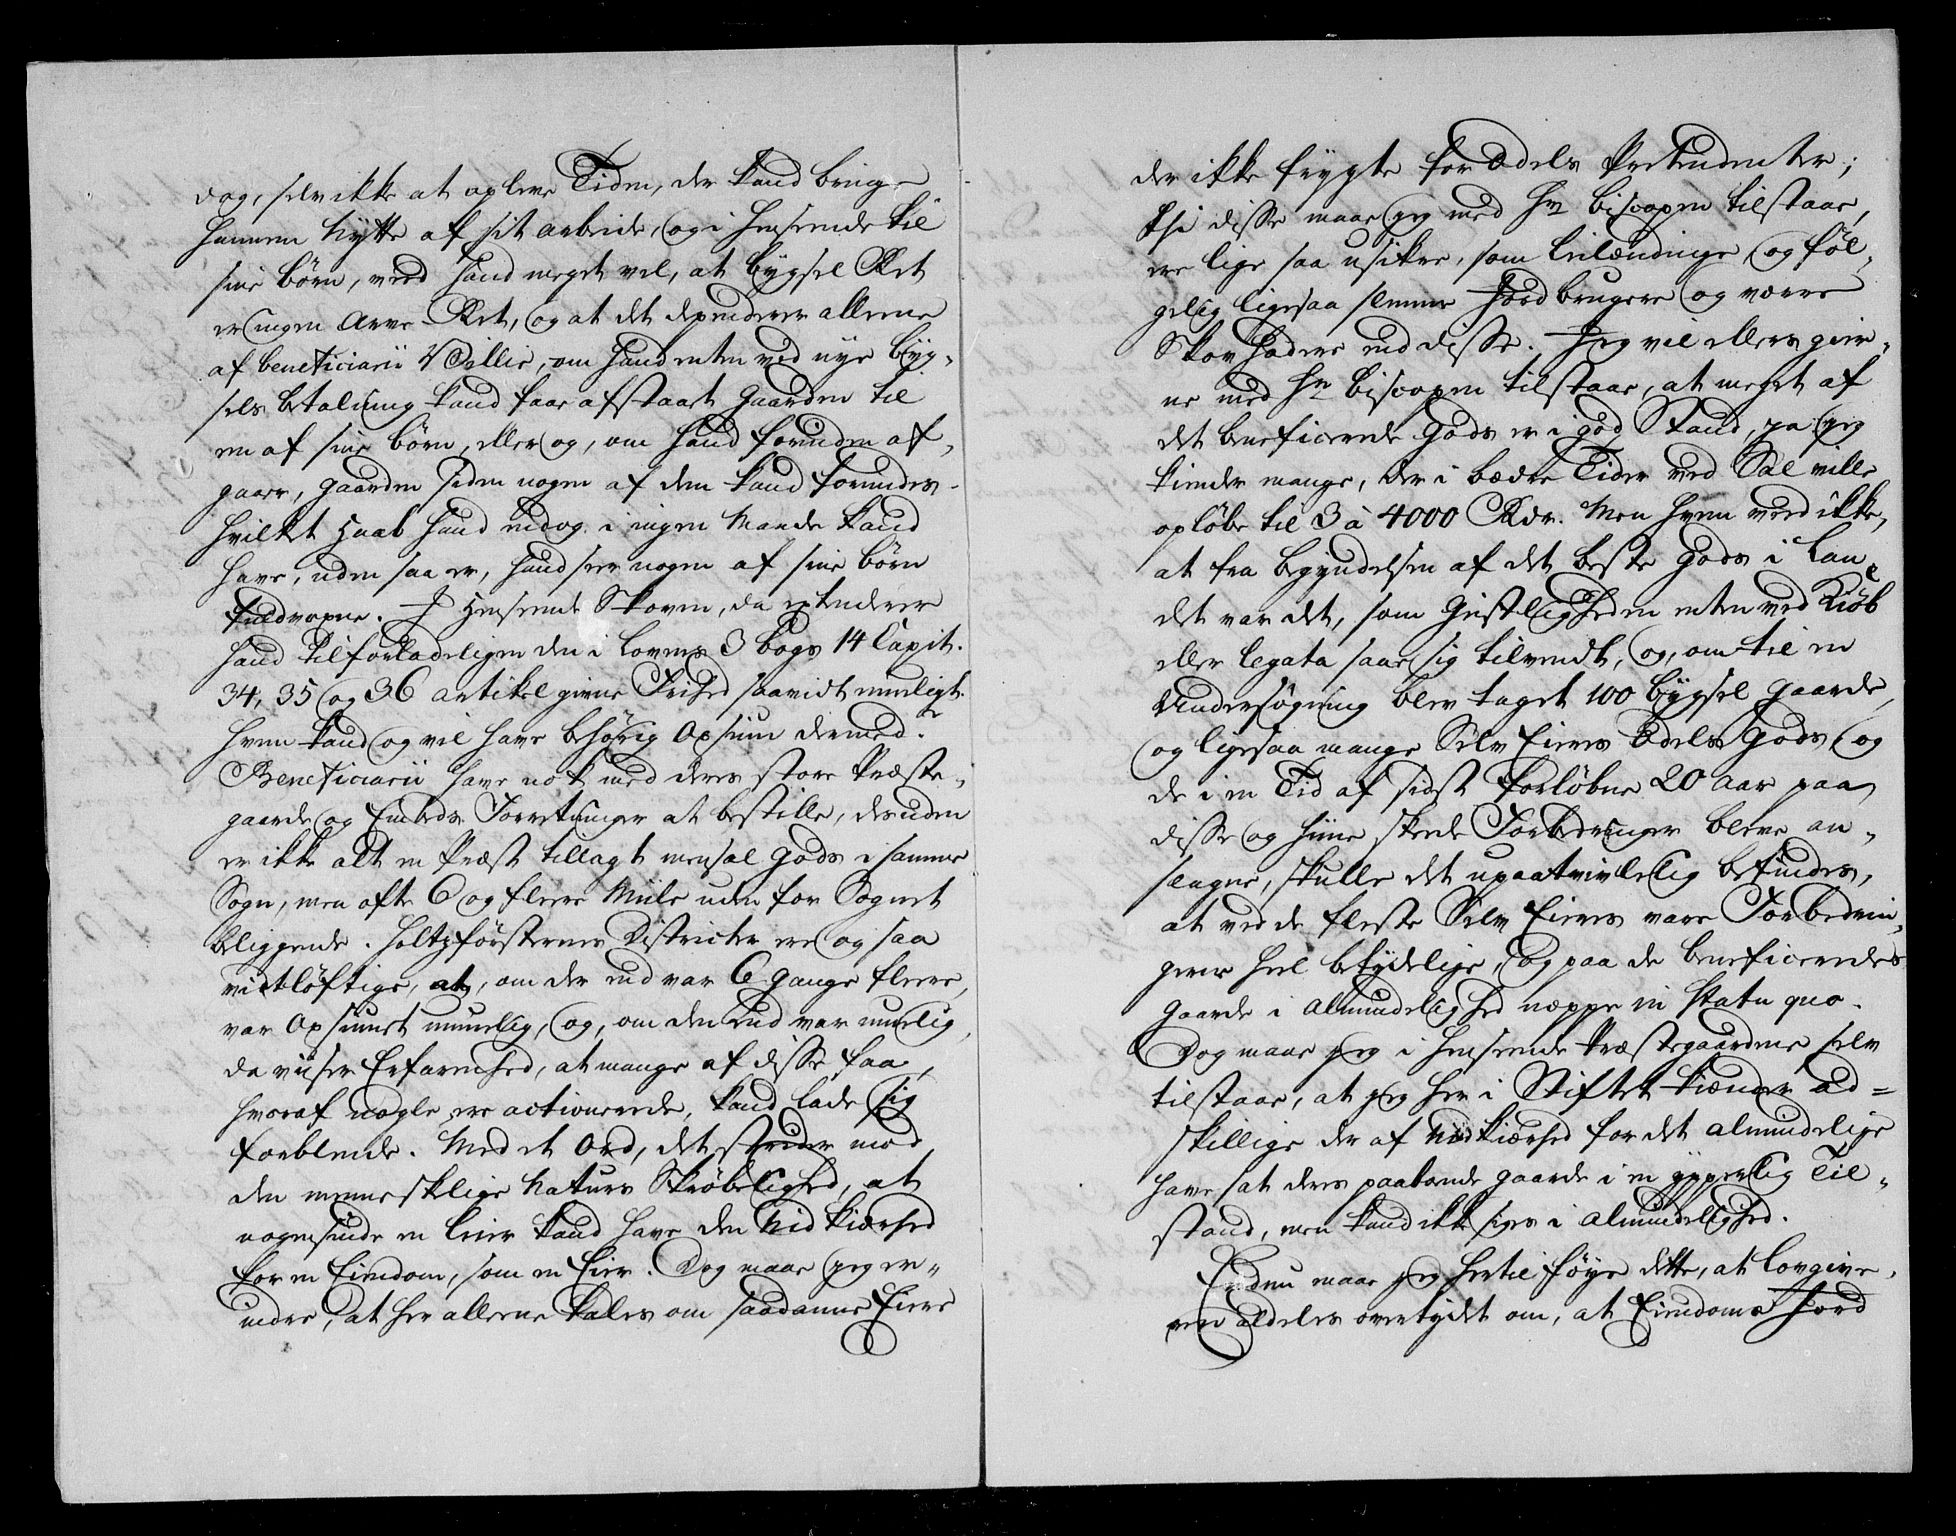 dog, selv ikke at opleve Tiden, der kand bringe
hannem Nytte af sit arbeide, og i henseende til
sine börn, veed hand meget vel, at bygsel Ret
er ingen Arve-Ret, og at det dependerer alleene
af beneficiarii Villie, om hand enten ved nye byg-
sels betalning kand faae afstaaet gaarden til
en af sine börn, eller og, om hand foruden af-
gaaer, gaarden siden nogen af dem kand forundes.
hvilket Haab hand endog i ingen Maade kand
have, uden saa er, hand seer nogen af sine börn
fuldvoxne. I Henseende Skoven, da extenderer
hand tilforladeligen den i Lovens 3 bogs 14 Capit.
34, 35 og 36 artikel givne Frihed saavidt mueligt.
hvem kand og vil have behörig Opsiun dermed.
Beneficiarii have nok med deres store Præste-
gaarde og Embeds Forretninger at bestille, desuden
er ikke alt en Præst tillagt mensal Gods i samme
Sogn, men ofte 6 og fleere Miile uden for Sognet
beliggende. Holtzförsternes Districter ere og saa
vidtlöftige, at, om der end var 6 gange fleere,
var Opsiunet umuelig, og, om den end var muelig,
da viiser Erfarenhed, at mange af disse faa,
hvoraf nogle ere actionerede, kand lade sig
forblende. Med et Ord, det strider mod
den menneskelige Naturs Skröbelighed, at
nogensinde en Leier kand have den Nidkierhed
for en Eiendom, som en Eier. Dog maae jeg er-
indre, at her alleene tales om saadanne Eiere
der ikke frygte for Odels Prætendenter;
thi disse maae jeg med Hr biscopen tilstaae,
ere lige saa usikre, som Leilændinge og föl-
gelig ligesaa slemme Jordbrugere og værre
Skov Ödere end disse. Jeg vil ellers gier-
ne med Hr biscopen tilstaae, at meget af
det beneficerede Gods er i god Stand, ja jeg
kiender mange, der i bædre Tider ved Sal ville
oplöbe til 3 à 4000 Rdr. Men hvem veed ikke,
at fra begyndelsen af det beste Gods i Lan-
det var det, som Geistligheden enten ved Kiöb
eller Legata saae sig tilvendt, og, om til en
Undersögning blev taget 100 bygsel gaarde,
og ligesaa mange Selv Eiers Odels Gods og
de i en Tid af sidst forløbne 20 Aar paa
disse og hiine skeede Forbedringer bleve an-
seagne, skulle det upaatvivlelig befindes,
at ved de fleste Selv Eiers vare Forbedrin-
gerne heel betydelige, og paa de beneficeredes
gaarde i Almindelighed neppe in statu quo.
Dog maae jeg i henseende Præstegaardene selv
tilstaae, at jeg her i Stiftet kiender ad=
skillige der af Nidkierhed for det almindelige
have sat deres paaboende gaarde i en ypperlig Til-
stand, men kand ikke siges i Almindelighed.
Endnu maae jeg hertil föye dette, at Lovgive-
ren aldeles overtydet om, at Eiendoms Jord